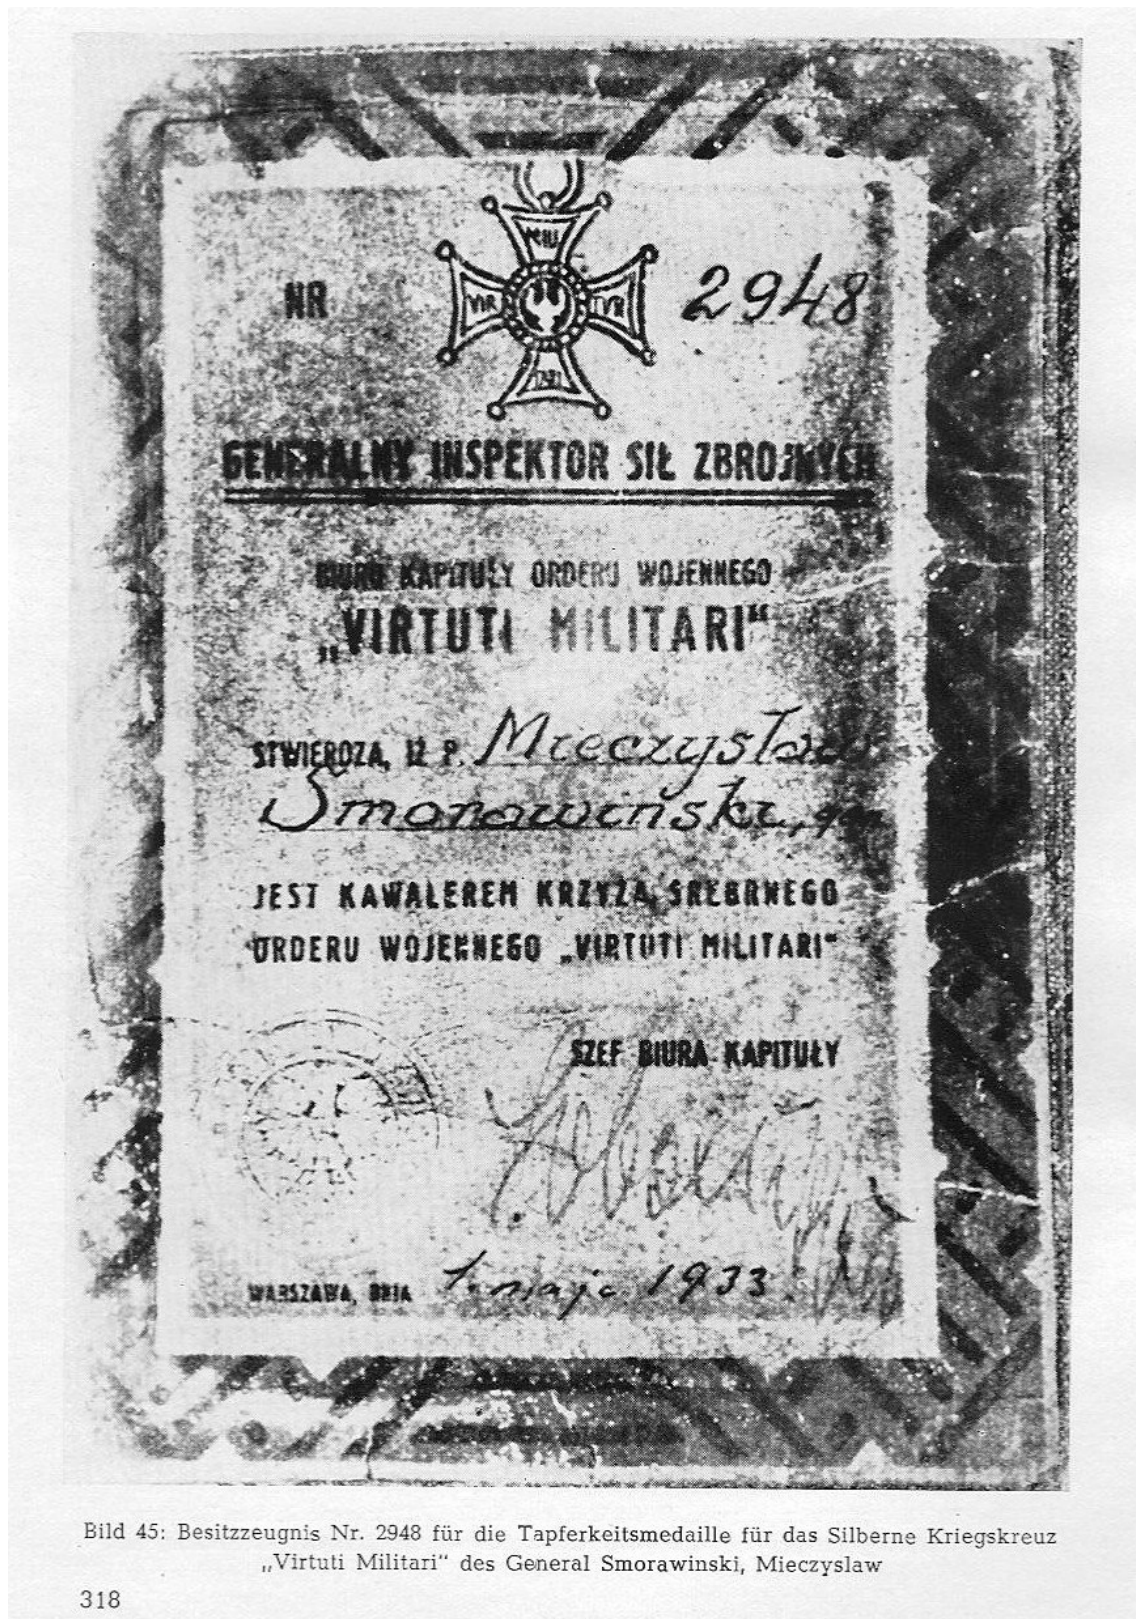 MILI
VIR TVTI
TARI
NR 2948
GENERALNY INSPEKTOR SIŁ ZBROJNYCH
BIURO KAPITUŁY ORDERU WOJENNEGO
„VIRTUTI MILITARI“
STWIERDZA, IŻ P. Mieczysław
Smorawiński, gen
JEST KAWALEREM KRZYŻA SREBRNEGO
ORDERU WOJENNEGO „VIRTUTI MILITARI“
SZEF BIURA KAPITUŁY
WARSZAWA, DNIA 1. maja 1933.
Bild 45: Besitzzeugnis Nr. 2948 für die Tapferkeitsmedaille für das Silberne Kriegskreuz
„Virtuti Militari“ des General Smorawinski, Mieczyslaw
318